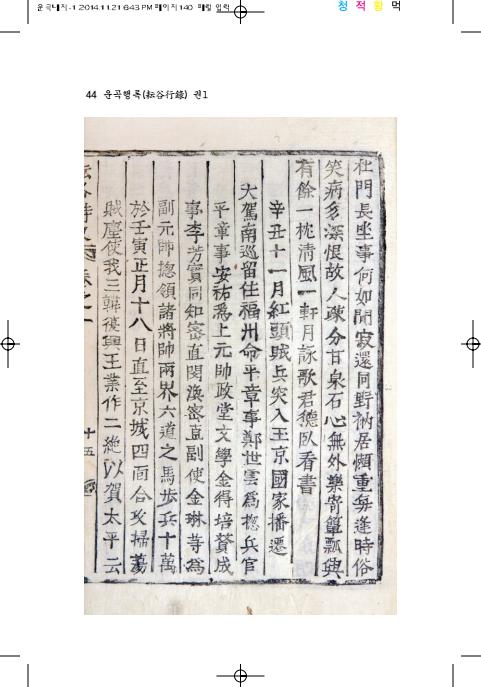 운곡대지-1 2014.11.21 6:43 PM 페이지140 매킬 입력
청 적 황 먹
44 운곡행록(耘谷行錄) 권1
杜門長坐事何如閒寂還同野衲居懶重每逢時俗
笑病多深恨故人疎分甘泉石心無外樂寄簞瓢興
有餘一枕淸風一軒月詠歌君德臥看書
辛丑十一月紅頭賊兵突入王京國家播遷
大駕南巡留住福州命平章事鄭世雲爲摠兵官
平章事安祐爲上元帥政堂文學金得培贊成
事李芳實同知密直閔渙密直副使金琳等爲
副元帥摠領諸將帥兩界六道之馬步兵十萬
於壬寅正月十八日直至京城四面合攻掃蕩
賊塵使我三韓復興王業作二絶以賀太平云
十五